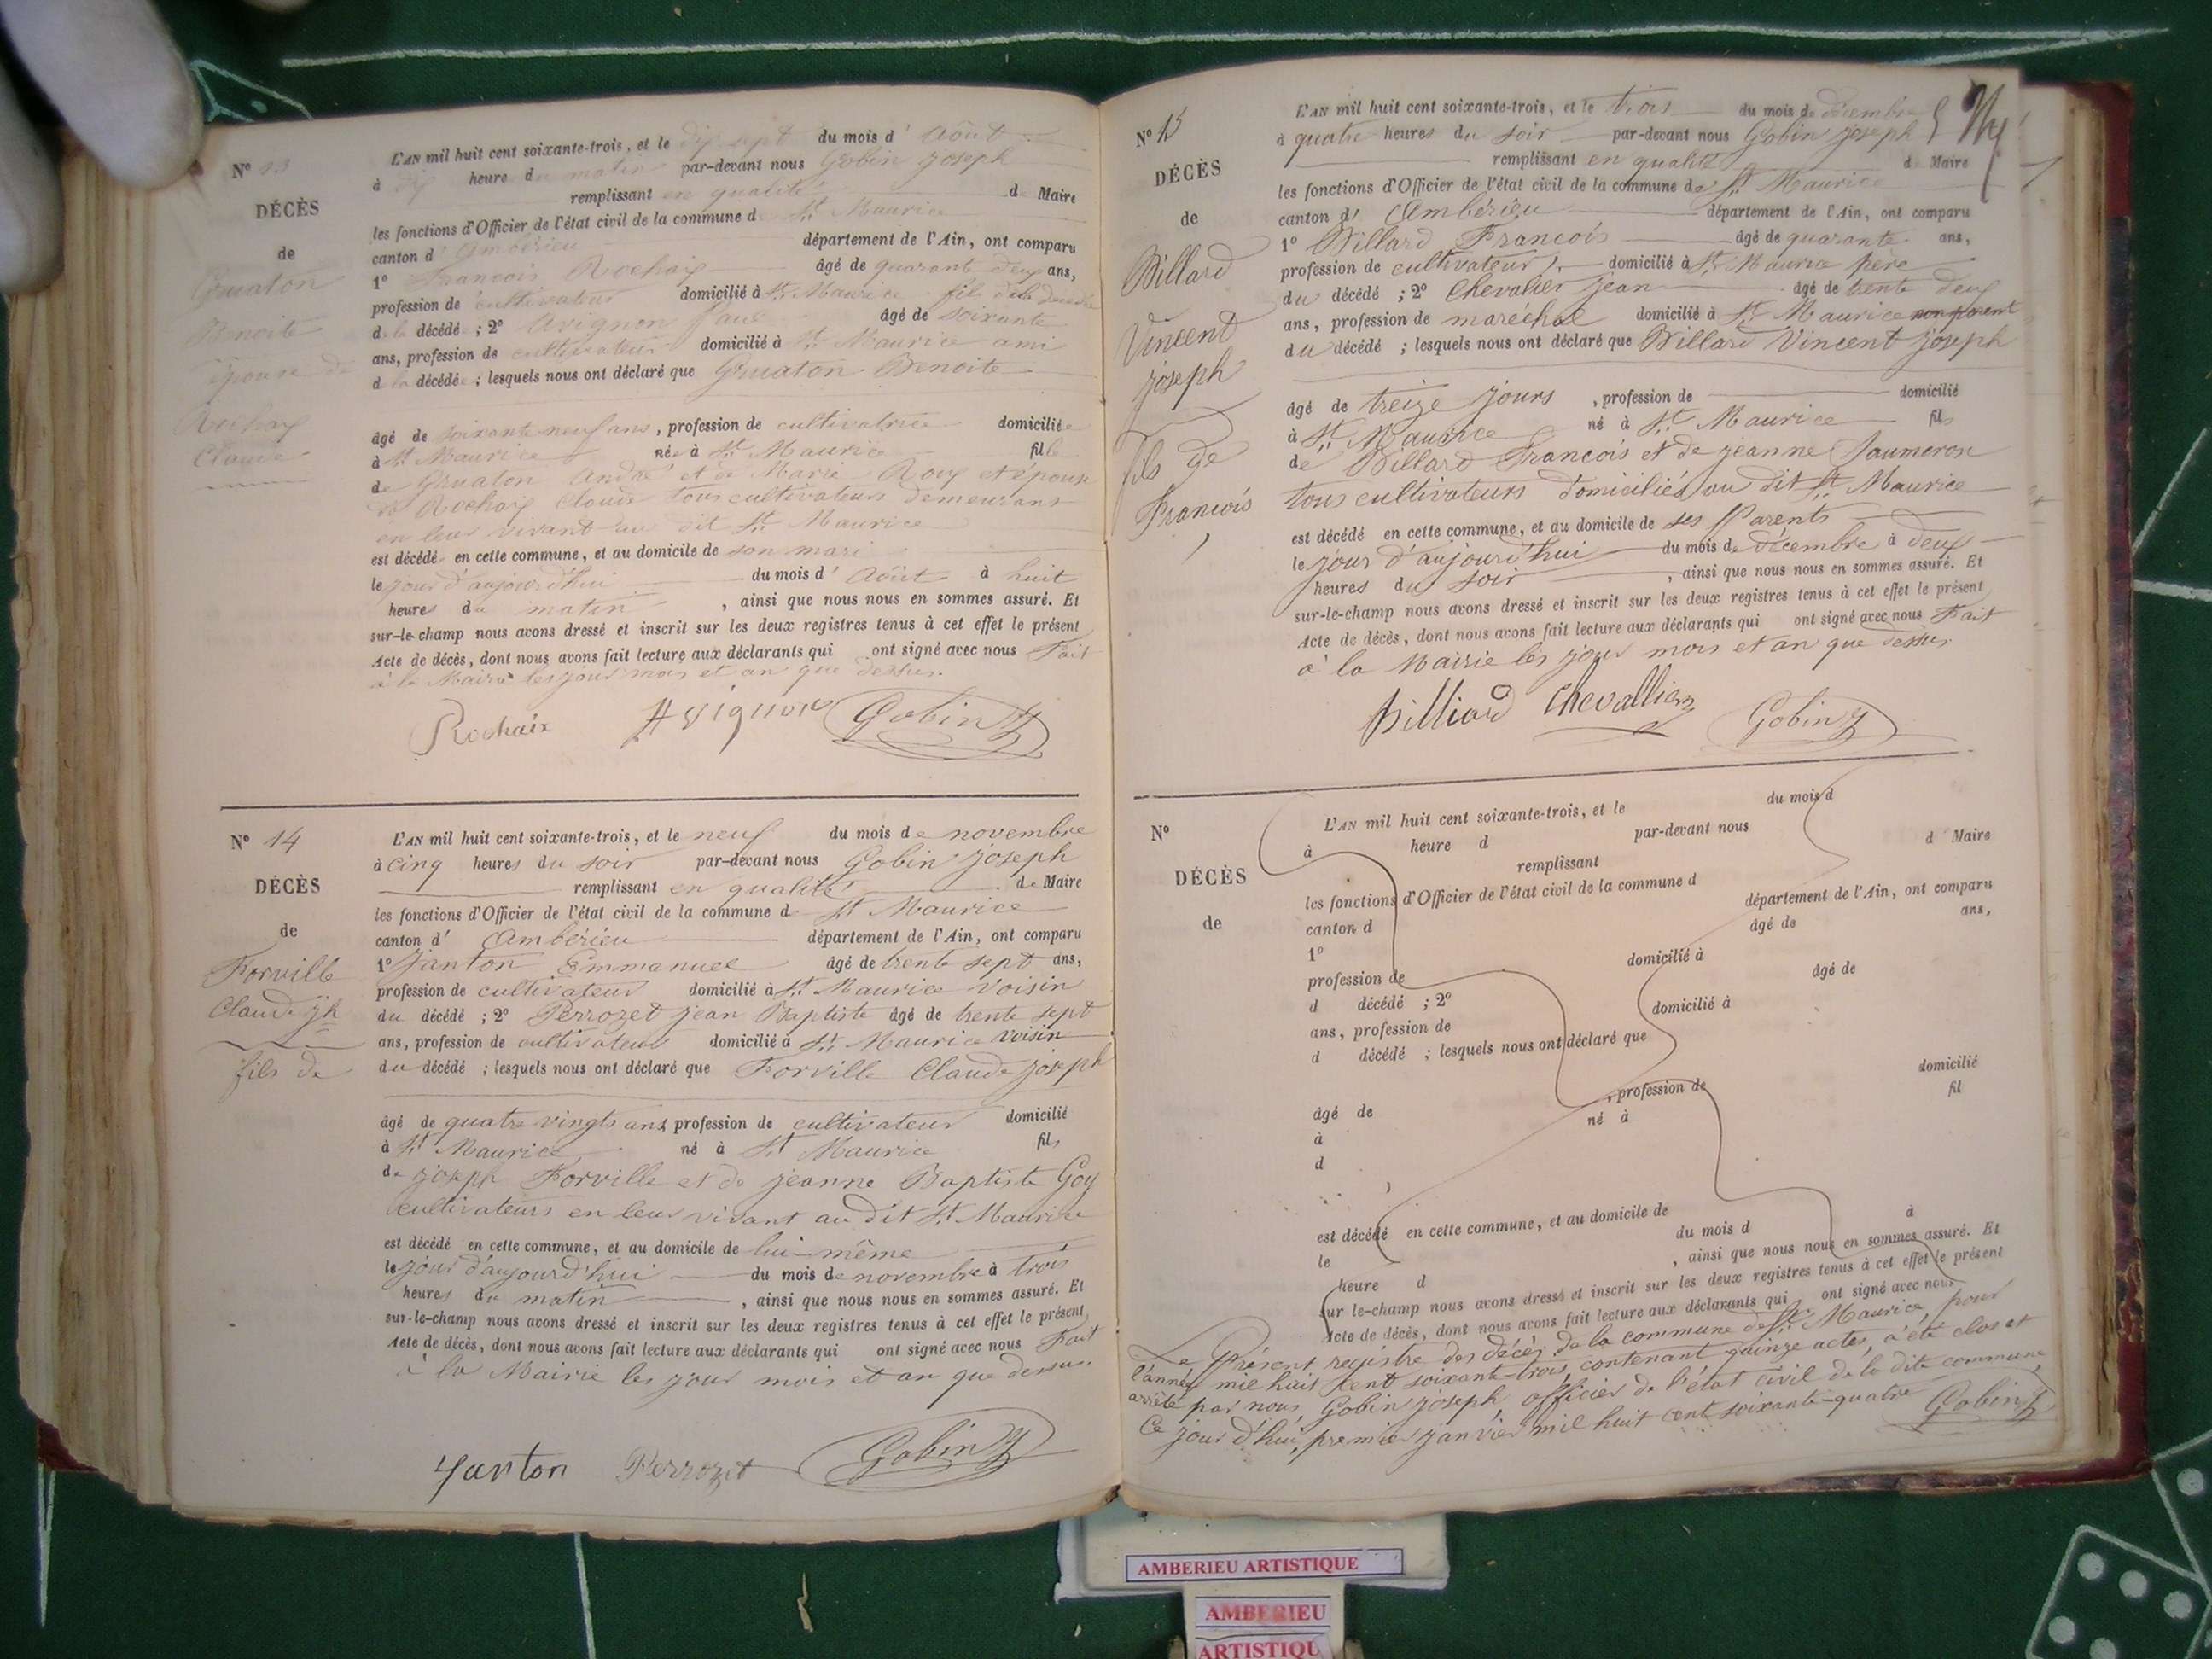 N° 13
DÉCÈS
de
Gruaton
Benoite
épouse de
Rochaix
Claude
L'AN mil huit cent soixante-trois, et le dix sept du mois d'Août
à dix heure du matin par-devant nous Gobin joseph
remplissant en qualité de Maire
les fonctions d'Officier de l'état civil de la commune de St Maurice
canton d'Ambérieu département de l'Ain, ont comparu
1° François Rochaix âgé de quarante deux ans,
profession de cultivateur domicilié à St Maurice fils de la
de la décédée ; 2° Avignon âgé de soixante
ans, profession de cultivateur domicilié à St Maurice ami
de la décédée ; lesquels nous ont déclaré que Gruaton Benoite
âgé de soixante neuf ans, profession de cultivatrice domiciliée
à St Maurice née à St Maurice fille
de Gruaton André et de Marie Roux et épouse
de Rochaix Claude tous cultivateurs demeurans
en leur vivant au dit St Maurice
est décédé en cette commune, et au domicile de son mari
le jour d'aujourd'hui du mois d'Août à huit
heures du matin, ainsi que nous nous en sommes assuré. Et
sur-le-champ nous avons dressé et inscrit sur les deux registres tenus à cet effet le présent
Acte de décès, dont nous avons fait lecture aux déclarants qui ont signé avec nous Fait
à la Mairie les jour mois et an que dessus.
Rochaix Avignon Gobin J
N° 14
DÉCÈS
de
Forville
Claude jh
fils de
L'AN mil huit cent soixante-trois, et le neuf du mois de novembre
à cinq heures du soir par-devant nous Gobin joseph
remplissant en qualité de Maire
les fonctions d'Officier de l'état civil de la commune de St Maurice
canton d'Ambérieu département de l'Ain, ont comparu
1° Janton Emmanuel âgé de trente sept ans,
profession de cultivateur domicilié à St Maurice voisin
du décédé ; 2° Perrozet jean Baptiste âgé de trente sept
ans, profession de cultivateur domicilié à St Maurice voisin
du décédé ; lesquels nous ont déclaré que Forville Claude joseph
âgé de quatre vingts ans profession de cultivateur domicilié
à St Maurice né à St Maurice fils
de joseph Forville et de jeanne Baptiste Goy
cultivateurs en leur vivant au dit St Maurice
est décédé en cette commune, et au domicile de lui-même
le jour d'aujourd'hui du mois de novembre à trois
heures du matin, ainsi que nous nous en sommes assuré. Et
sur-le-champ nous avons dressé et inscrit sur les deux registres tenus à cet effet le présent
Acte de décès, dont nous avons fait lecture aux déclarants qui ont signé avec nous Fait
à la Mairie les jour mois et an que dessus
Janton Perrozet Gobin J
N° 15
DÉCÈS
de
Billard
Vincent
joseph
fils de
François
L'AN mil huit cent soixante-trois, et le trois du mois de Décembre
à quatre heures du soir par-devant nous Gobin joseph
remplissant en qualité de Maire
les fonctions d'Officier de l'état civil de la commune de St Maurice
canton d'Ambérieu département de l'Ain, ont comparu
1° Billard François âgé de quarante ans,
profession de cultivateur domicilié à St Maurice père
du décédé ; 2° Chevalier jean âgé de trente deux
ans, profession de maréchal domicilié à St Maurice non parent
du décédé ; lesquels nous ont déclaré que Billard Vincent joseph
âgé de treize jours, profession de domicilié
à St Maurice né à St Maurice fils
de Billard François et de jeanne Saumeron
tous cultivateurs domiciliés au dit St Maurice
est décédé en cette commune, et au domicile de ses Parents
le jour d'aujourd'hui du mois de décembre à deux
heures du soir, ainsi que nous nous en sommes assuré. Et
sur-le-champ nous avons dressé et inscrit sur les deux registres tenus à cet effet le présent
Acte de décès, dont nous avons fait lecture aux déclarants qui ont signé avec nous Fait
à la Mairie les jour mois et an que dessus
Billiard Chevallier Gobin J
N°
DÉCÈS
de
L'AN mil huit cent soixante-trois, et le du mois d
à heure d par-devant nous
remplissant d Maire
les fonctions d'Officier de l'état civil de la commune d
canton d département de l'Ain, ont comparu
1° âgé de ans,
profession de domicilié à
d décédé ; 2° âgé de
ans, profession de domicilié à
d décédé ; lesquels nous ont déclaré que
âgé de , profession de domicilié
à né à fil
d
est décédé en cette commune, et au domicile de
le du mois d à
heure d , ainsi que nous nous en sommes assuré. Et
sur le-champ nous avons dressé et inscrit sur les deux registres tenus à cet effet le présent
Acte de décès, dont nous avons fait lecture aux déclarants qui ont signé avec nous
Le Présent registre des décès de la commune de St Maurice pour
l'année mil huit cent soixante-trois, contenant quinze actes, a été clos et
arrêté par nous Gobin joseph officier de l'état civil de la dite commune
Ce jour d'hui, premier janvier mil huit cent soixante-quatre Gobin J
AMBERIEU ARTISTIQUE
AMBERIEU
ARTISTIQU